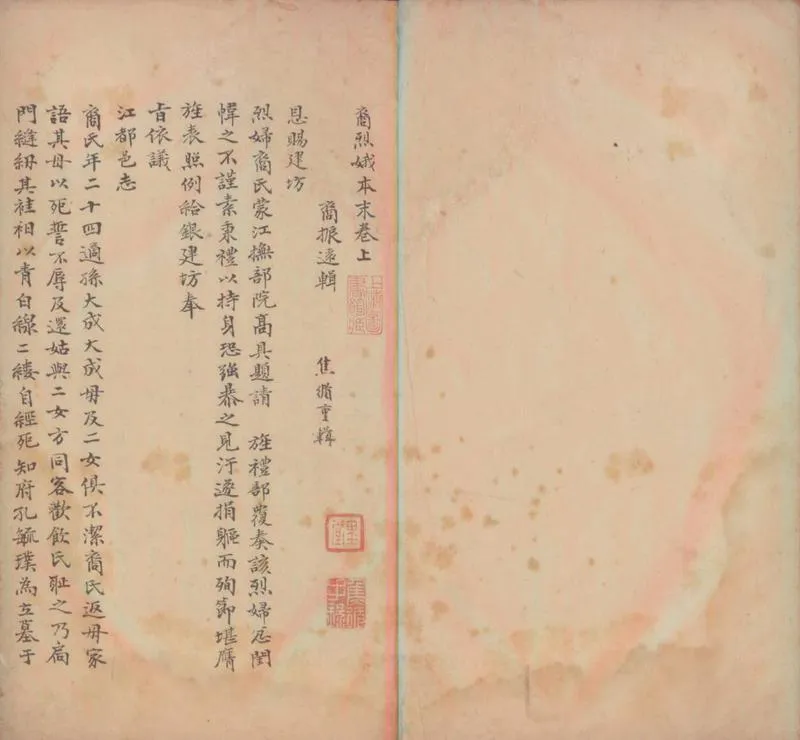 裔烈娥本末卷上
裔振遠輯 焦循重輯
恩賜建坊
烈婦裔氏蒙江撫部院高具題請 旌禮部覆奏該烈婦忿閨
幃之不謹素秉禮以持身恐強暴之見汙遂捐軀而殉節堪膺
旌表照例給銀建坊奉
旨依議
江都邑志
裔氏年二十四適孫大成大成母及二女俱不潔裔氏返母家
語其母以死誓不辱及還姑與二女方同客歡飲氏恥之乃扃
門縫紉其以青白線二縷自經死知府孔毓璞為立墓于
上海圖書館藏
里堂